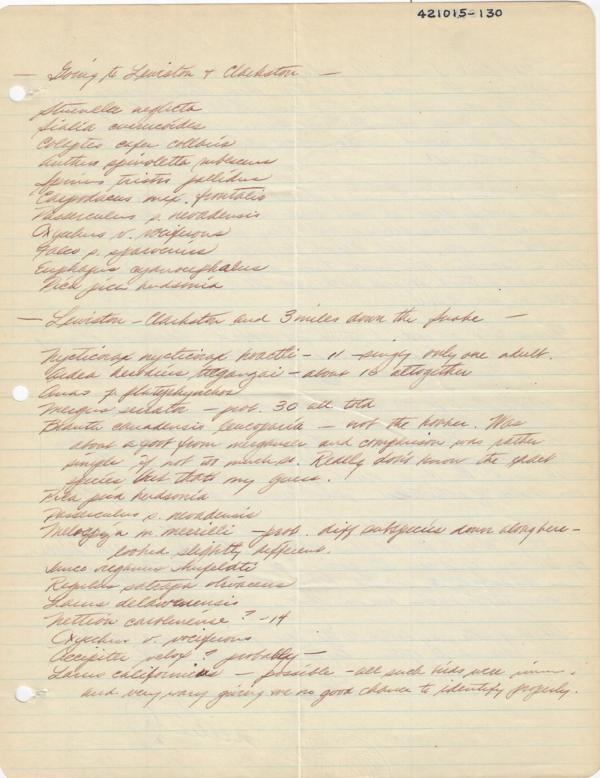 421015-130
— Going to Lewiston & Clarkston —
Sturnella neglecta
Sialia currucoides
Colaptes cafer collaris
Anthus spinoletta rubescens
Spinus tristis pallidus
Carpodacus mex. frontalis
Passerculus s. nevadensis
Oxyechus v. vociferous
Falco s. sparverius
Euphagus cyanocephalus
Pica pica hudsonia
— Lewiston - Clarkston and 3 miles down the Snake —
Nycticorax nycticorax hoactli - 11 - singly only one adult.
Ardea herodias treganzai - about 18 altogether
Anas p. platyrhynchos
Mergus serrator - prob. 30 all told
Branta canadensis leucopareia - not the honker. Was
about a foot from merganser and comparison was rather
simple if not too much so. Really don't know the exact
species but that's my guess.
Pica pica hudsonia
Passerculus s. nevadensis
Melospiza m. merrilli - prob. diff subspecies down along here -
looked slightly different.
Junco oreganus shufeldti
Regulus satrapa olivaceus
Larus delawarensis
Nettion carolinense ? - 14
Oxyechus v. vociferous
Accipiter velox ? probably -
Larus californicus - possible - all such birds were
and very wary giving me no good chance to identify properly.